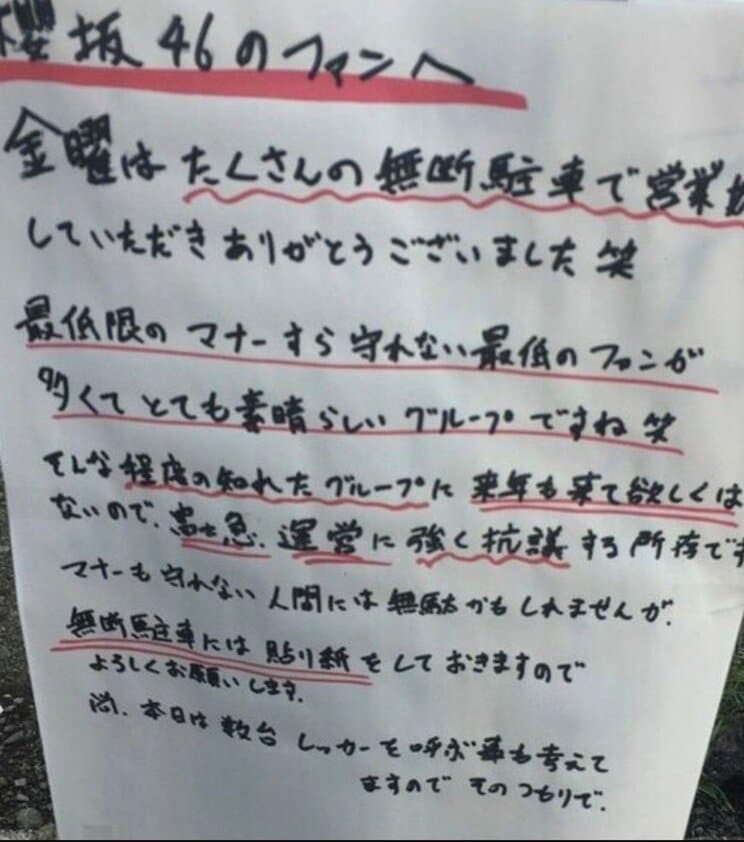 櫻坂46のファンへ
金曜はたくさんの無断駐車で営業
していただきありがとうございました笑
最低限のマナーすら守れない最低のファンが
多くてとても素晴らしいグループですね笑
そんな程度の知れたグループに来年も来て欲しくは
ないので、富士急、運営に強く抗議する所存です
マナーも守れない人間には無駄かもしれませんが、
無断駐車には貼り紙をしておきますので
よろしくお願いします。
尚、本日は数台レッカーを呼ぶ事も考えて
ますのでそのつもりで、